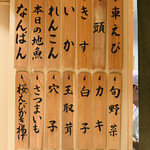 車えび
頭
きす
いか
れんこん
本日の地魚
なんばん
旬野菜
カキ
白子
玉取茸
穴子
さつまいも
桜えびかき揚